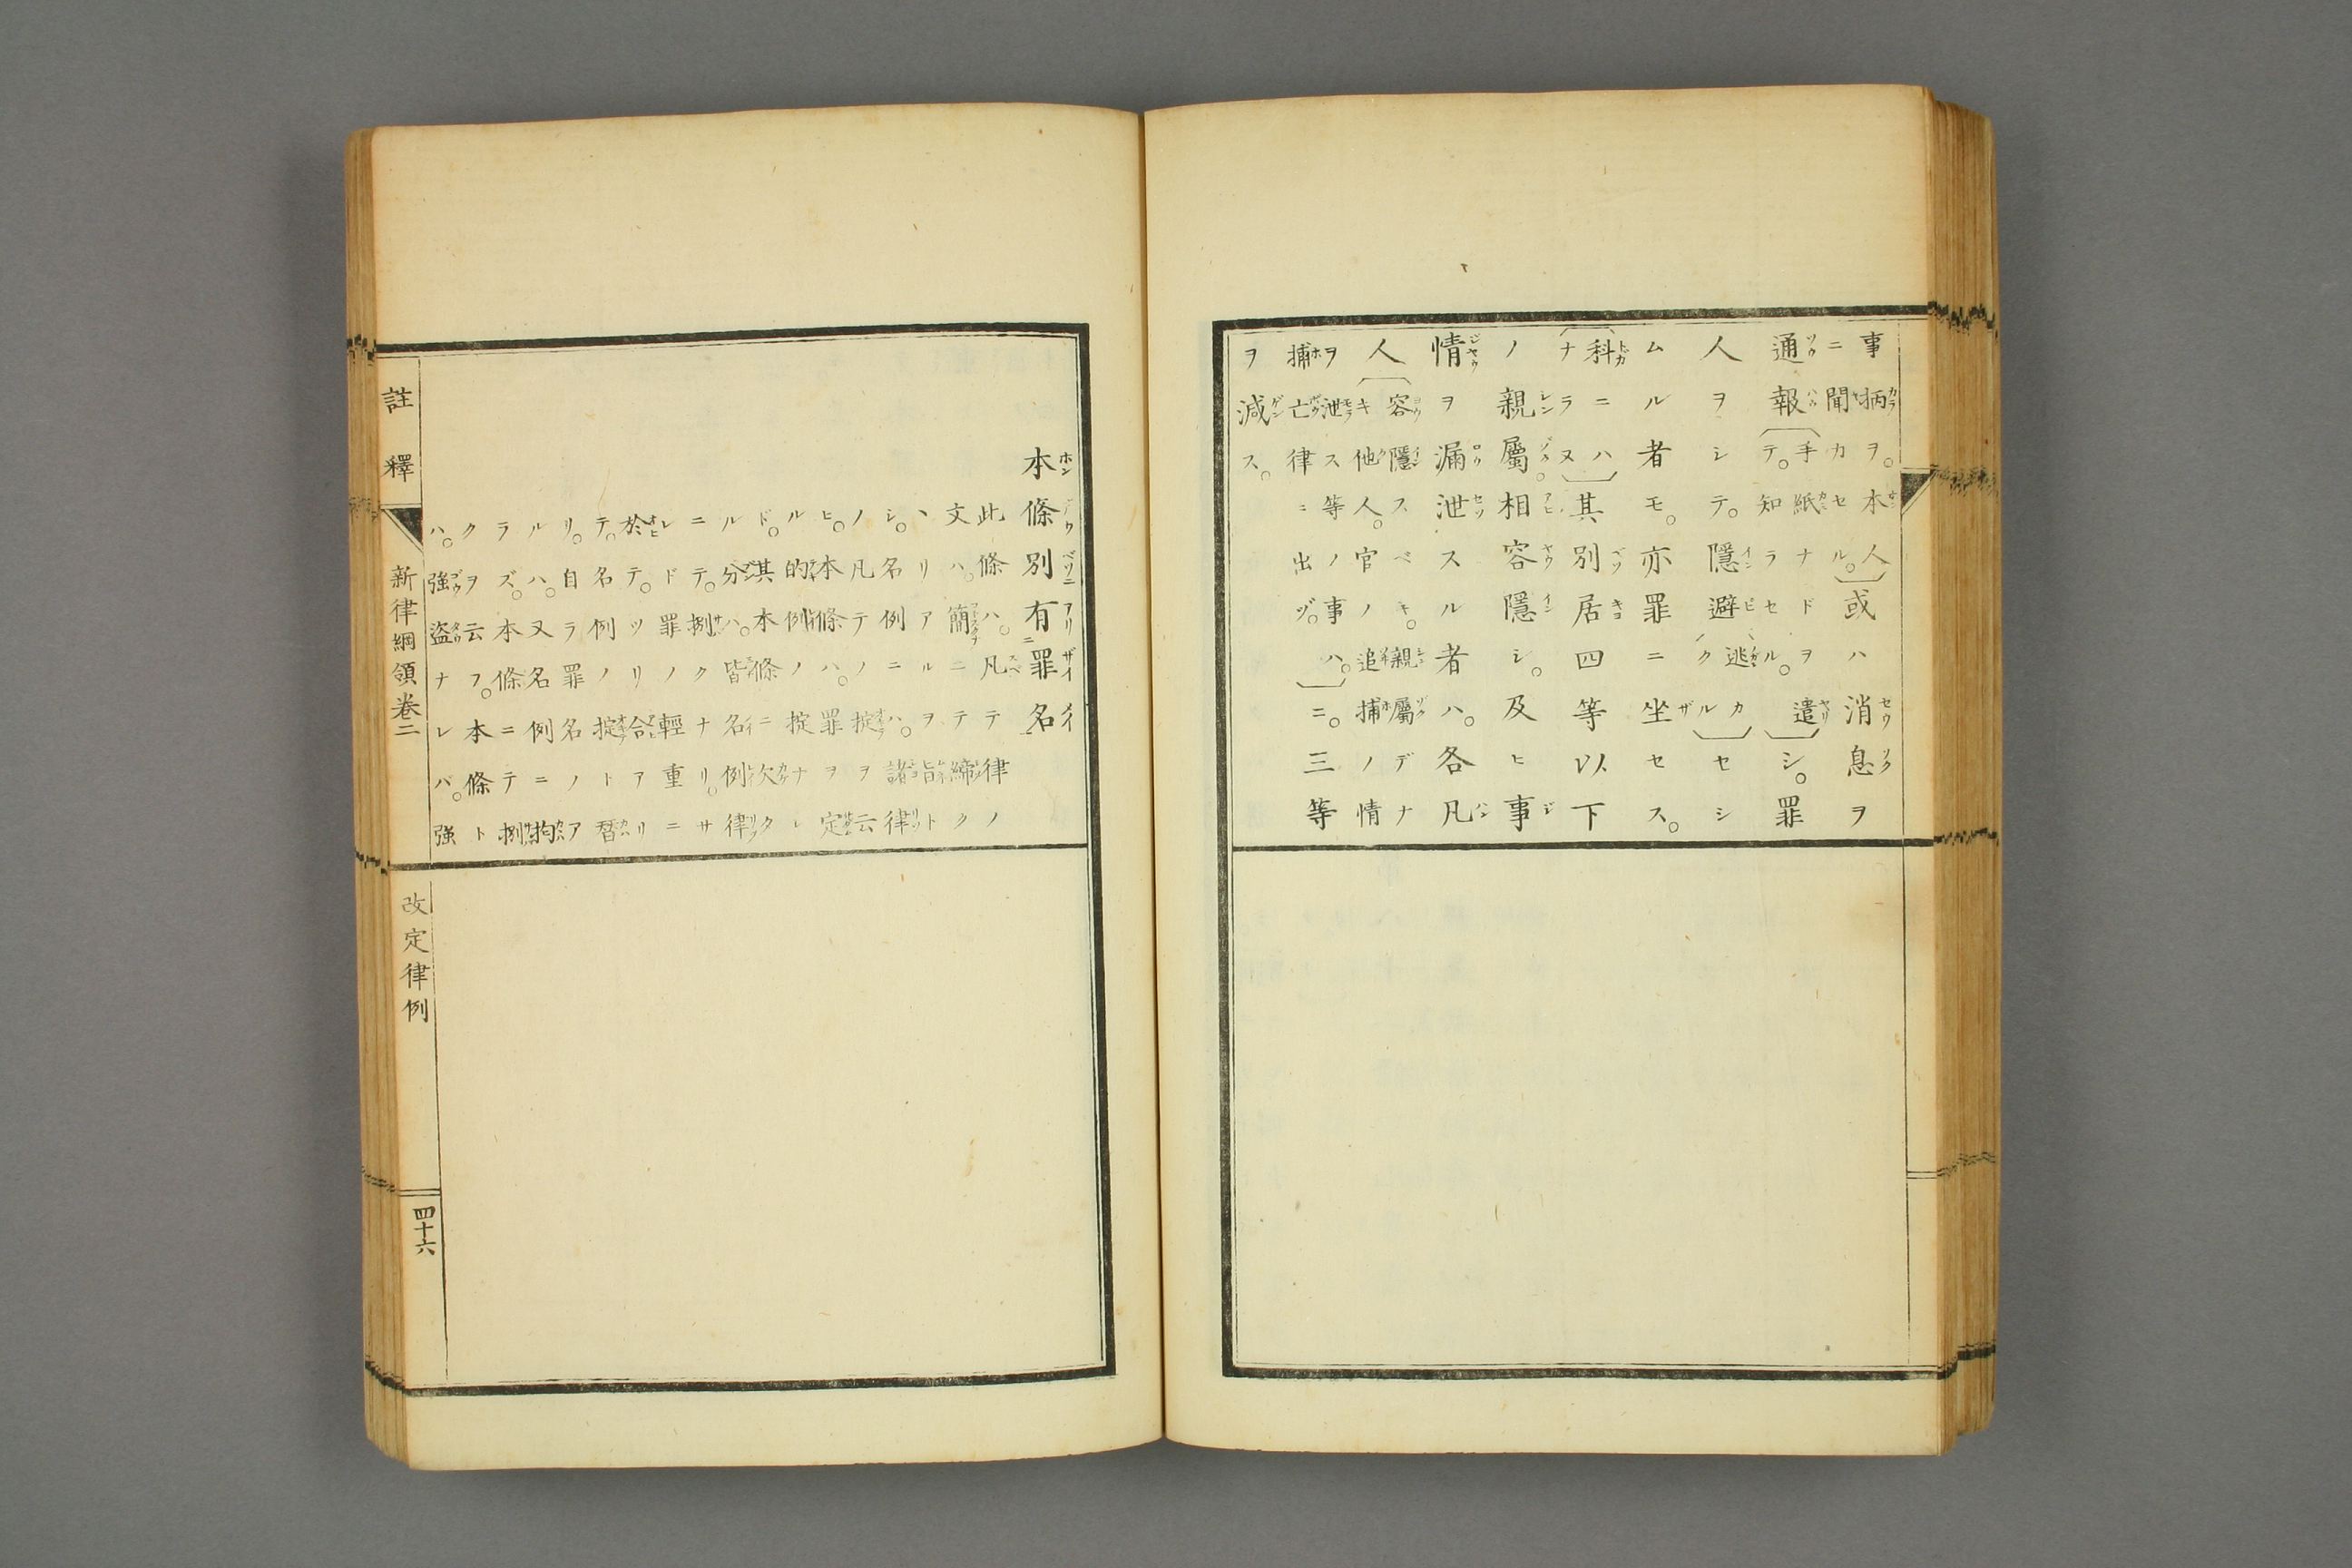 事柄ヲ。本人
ニ聞カセル。
或ハ消息ヲ
通報
手紙ナドヲ遣
テ。知ラセル。
シ。罪
人ヲシテ。隱避
逃カ
クル
セシ
ムル者モ。亦罪ニ坐セス。
科ニハ
ナラヌ
其別居四等以下
ノ親屬。相容隱シ。及ヒ事
情ヲ漏泄スル者ハ。各凡
人
容隱スベキ。親屬デナ
キ他人。官ノ追捕ノ情
ヲ泄ス等ノ事ハ。
捕亡律ニ出ヅ。
ニ。三等
ヲ減ス。
本條別有罪名
此條ハ。凡テ律ノ
文ハ。簡ニテ締ク
丶リアルヲ旨ト
シ。名例ニハ。諸律
ノ凡テノ掟ヲ云
ヒ。本條ハ。罪ヲ定
ル的例ノ掟ナレ
ド。其本條ニ次タ
ル分ハ。皆名例律
ニテ。捌クナリ。サ
レド罪ノ輕重ニ
於テ。ツリ合アリ
テ。名例ノ掟ト替
リ。自ラ罪名ノア
ルハ。又名例ニ拘
ラズ。本條ニテ捌
クヲ云フ。本條ト
ハ。強盗ナレバ。強
註釋
新律綱領卷二
改定律例
四十六